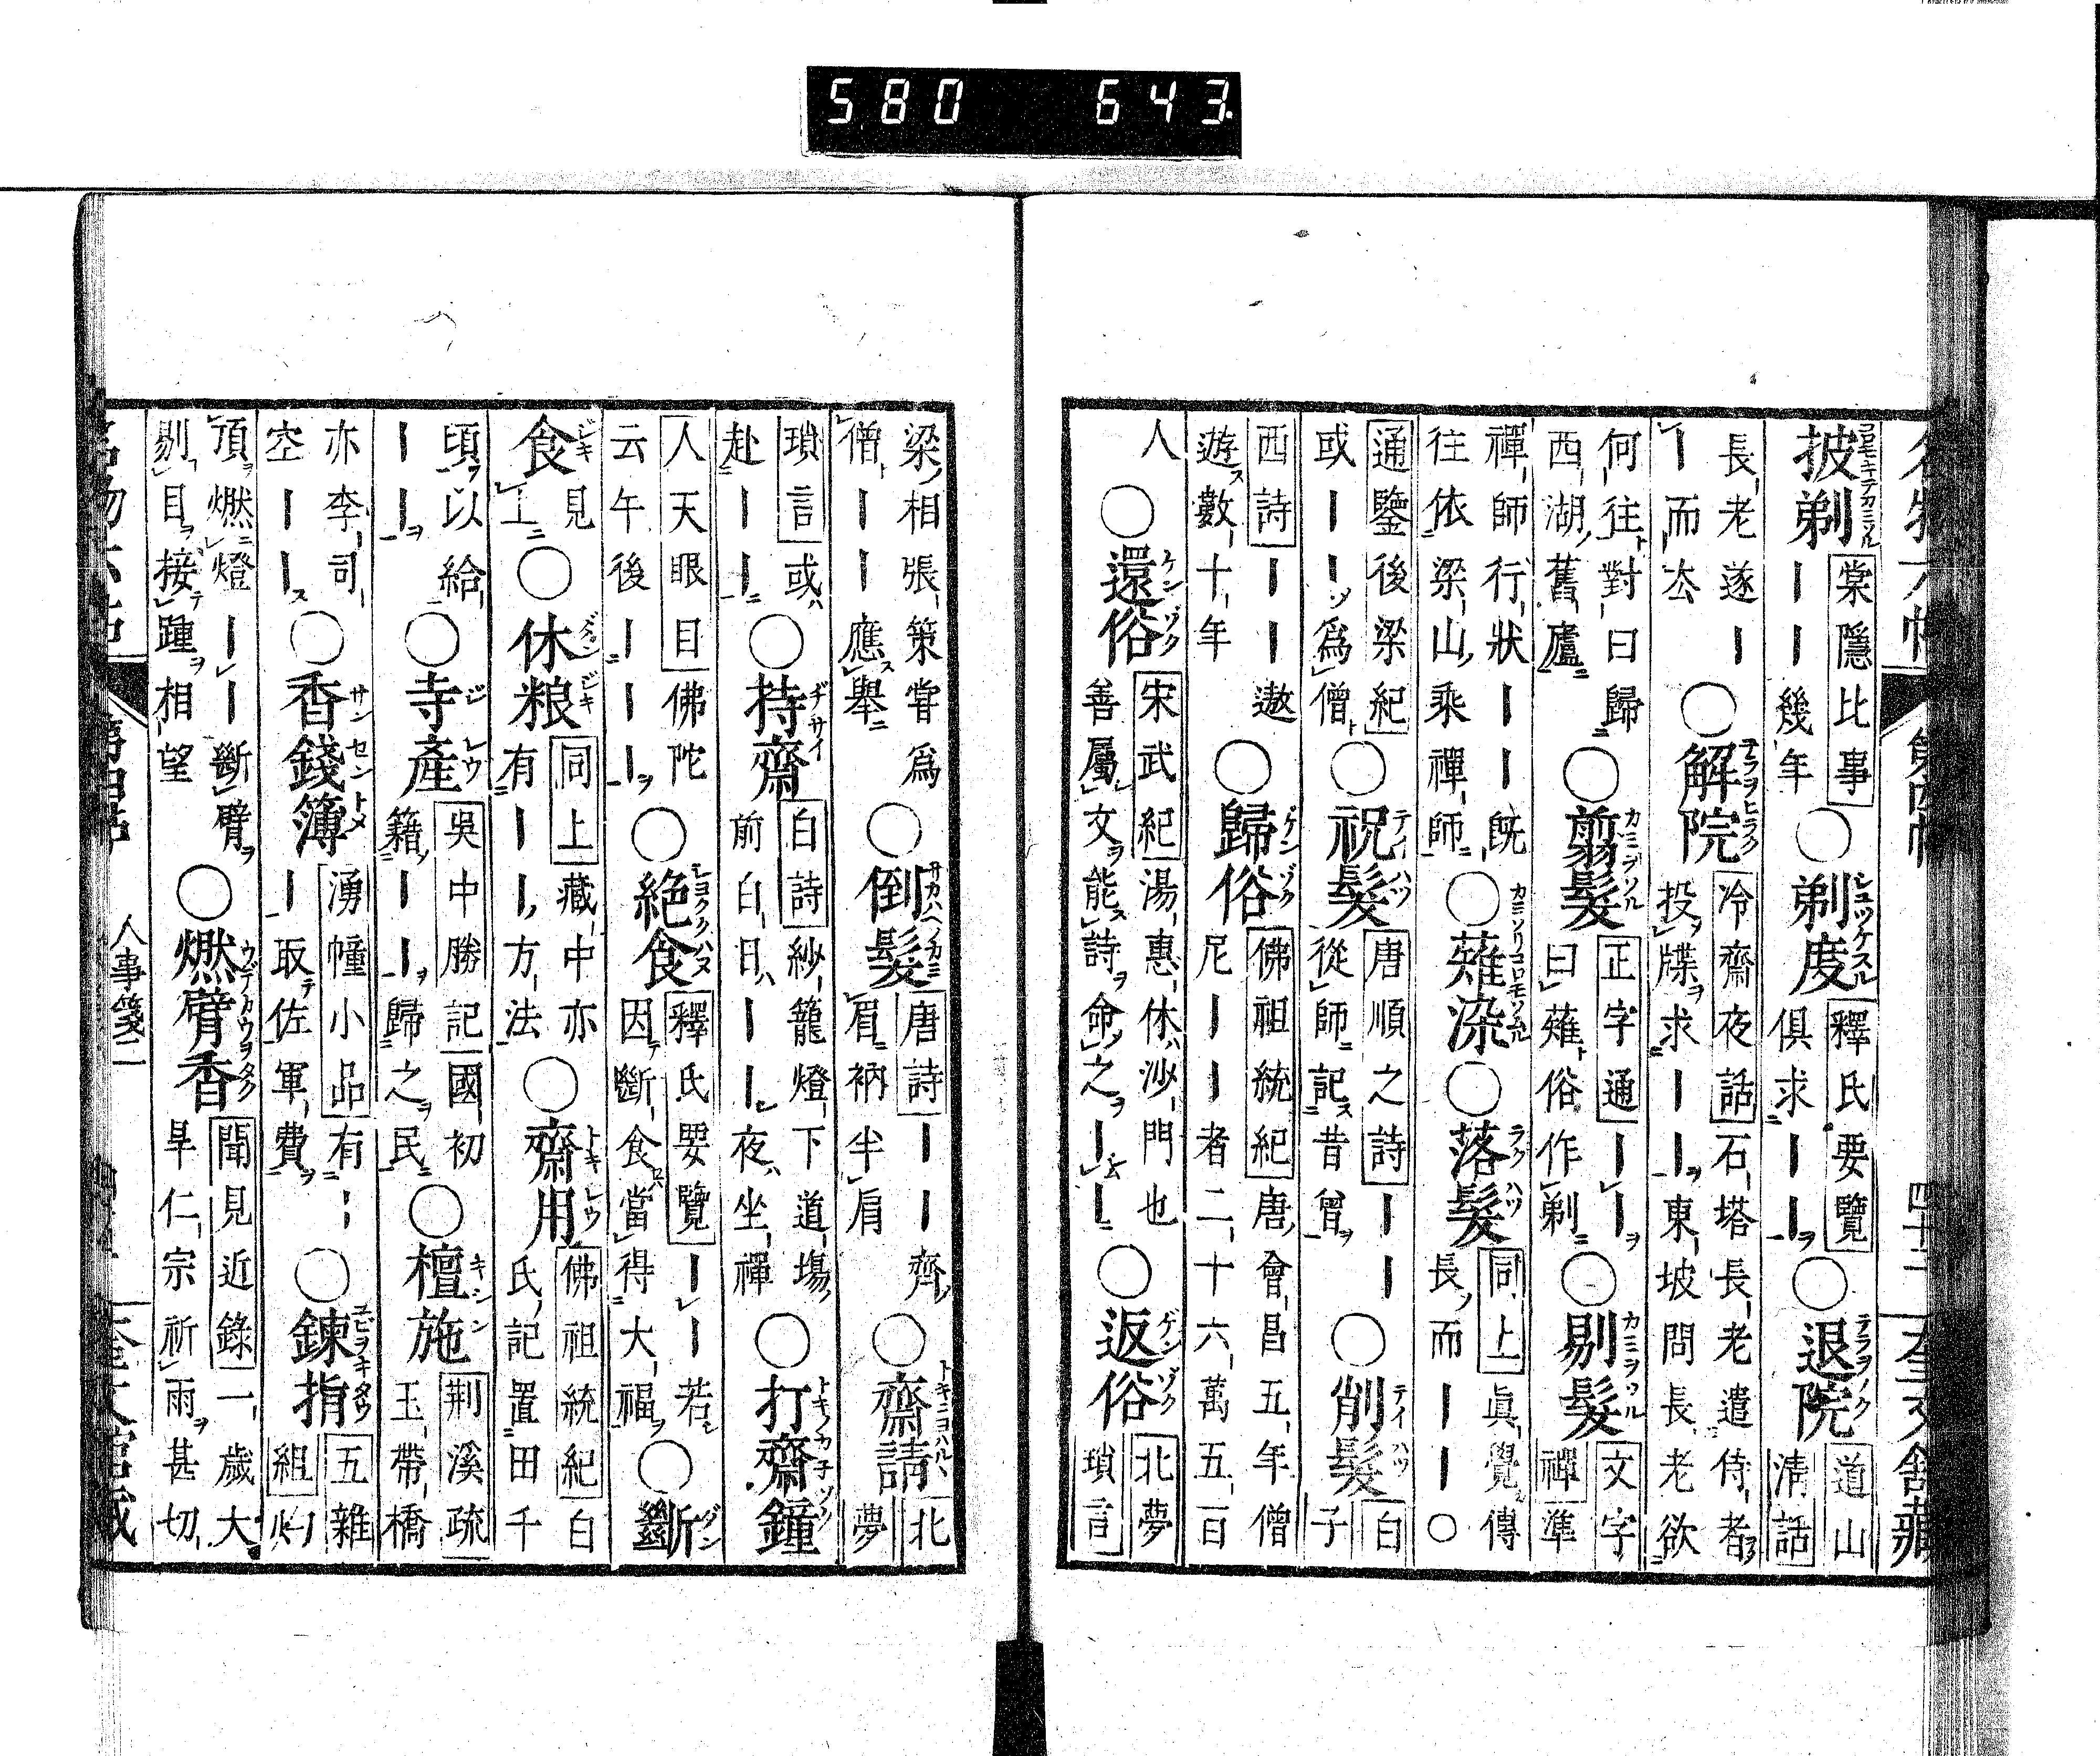 580 643
披剃 棠隱比事 ｜｜幾年 ○剃度 釋氏要覽 俱求｜｜ ○退院 道山清話
長老遂｜｜而去 ○解院 冷齋夜話 石塔長老遣侍者投牒求｜｜東坡問長老欲
何往對曰歸西湖舊廬 ○剪髮 正字通 ｜｜曰薙俗作剃 ○剔髮 文字禪 準
禪師行狀｜｜既往依梁山乘禪師 ○薙染 ○落髮 同上 眞覺傳 長而｜｜○
通鑒後梁紀 或｜｜爲僧 ○祝髮 唐順之詩 ｜｜從師記昔曾 ○削髮 白子
西詩 ｜｜遨遊數十年 ○歸俗 佛祖統紀 唐會昌五年僧尼｜｜者二十六萬五百
人 ○還俗 宋武紀 湯惠休沙門也善屬文能詩命之｜｜ ○返俗 北夢瑣言
梁相張策嘗爲僧｜｜應舉 ○倒髮 唐詩 ｜｜齊眉衲半肩 ○齋請 北夢
瑣言 或赴｜｜ ○持齋 白詩 紗籠燈下道場前白日｜｜夜坐禪 ○打齋鐘
人天眼目 佛陀云午後｜｜｜ ○絶食 釋氏要覽 ｜｜若因斷食當得大福 ○斷
食 見上 ○休粮 同上 藏中亦有｜｜方法 ○齋用 佛祖統紀 白氏記置田千
頃以給｜｜ ○寺產 吳中勝記 國初籍｜｜歸之民 ○檀施 荆溪疏 玉帶橋
亦李司空｜｜ ○香錢簿 湧幢小品 有｜取佐軍費 ○鍊指 五雜組 灼
頂燃燈｜｜斷臂剔目接踵相望 ○燃臂香 聞見近錄 一歲大旱仁宗祈雨甚切
人事箋二